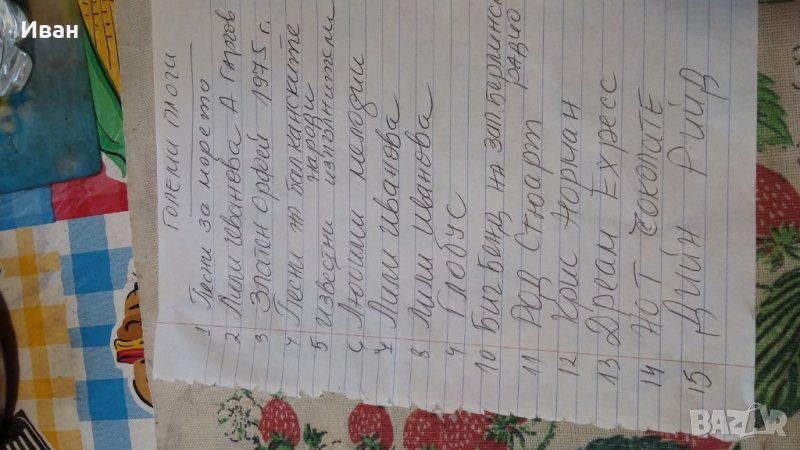 Иван
ГОЛЕМИ ПЛОЧИ
1 Песни за морето
2 Лили Иванова А Гяров
3 Златен Орфей 1975 г.
4 Песни на балканските
народи
5 известни изпълнители
6 Любими мелодии
7 Лили Иванова
8 Лили Иванова
9 Глобус
10 Биг Бенд на зап.берлинск
радио
11 Род Стюарт
12 Крис Норман
13 Дреам Express
14 НОТ ČOKOLATE
15 Дийн Рийд
BAZAR